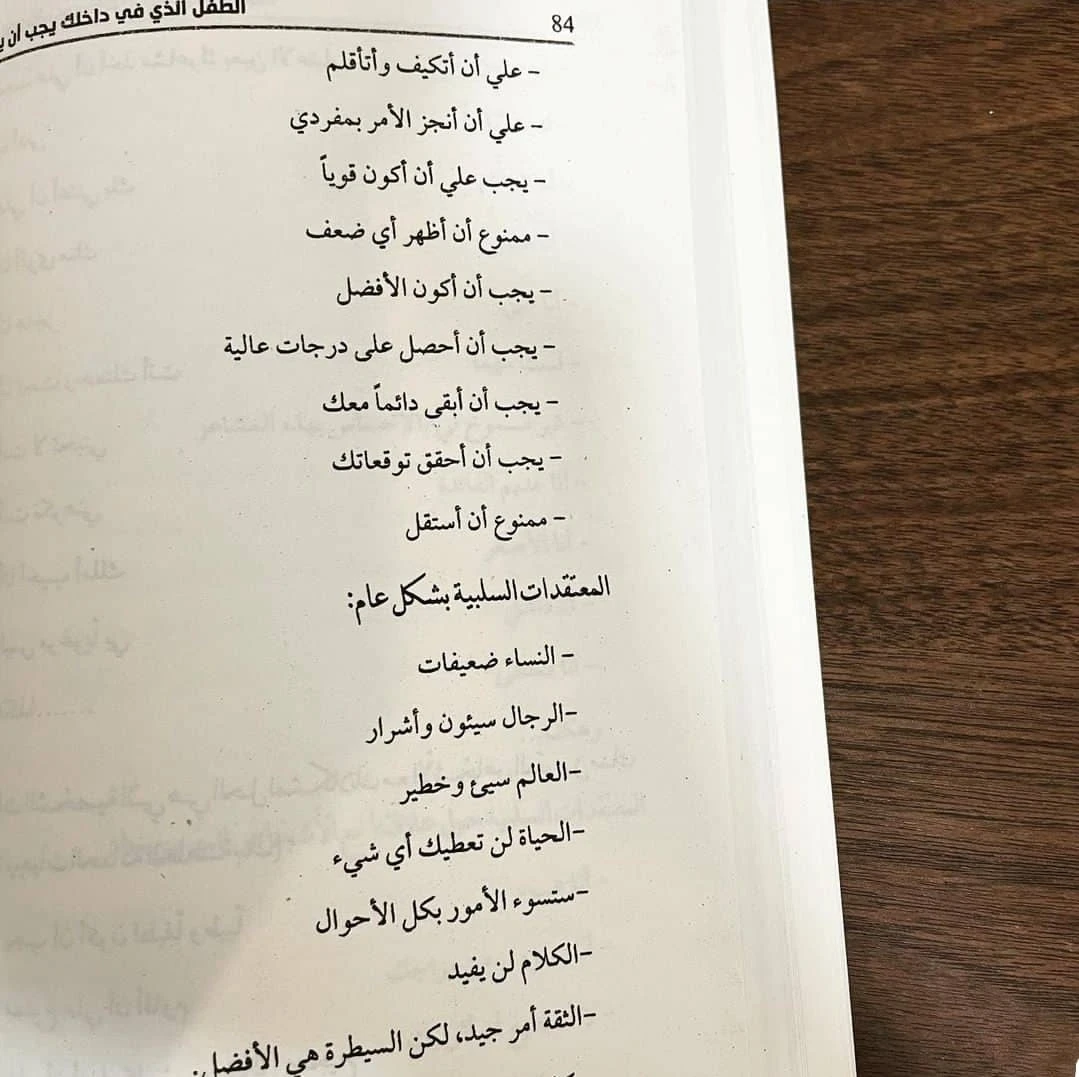 84
الطفل الذي في داخلك يجب أن
- علي أن أتكيف وأتأقلم
- علي أن أنجز الأمر بمفردي
- يجب علي أن أكون قوياً
- ممنوع أن أظهر أي ضعف
- يجب أن أكون الأفضل
- يجب أن أحصل على درجات عالية
- يجب أن أبقي دائماً معك
- يجب أن أحقق توقعاتك
- ممنوع أن أستقل
المعتقدات السلبية بشكل عام:
- النساء ضعيفات
-الرجال سيئون وأشرار
-العالم سيئ وخطير
-الحياة لن تعطيك أي شيء
-ستسوء الأمور بكل الأحوال
-الكلام لن يفيد
-الثقة أمر جيد، لكن السيطرة هي الأفضل.